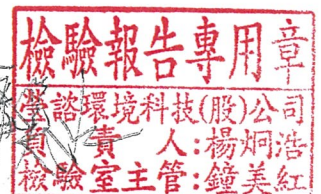 檢驗報告專用章
瑩諮環境科技(股)公司
負責人:楊炯浩
檢驗室主管:鐘美紅